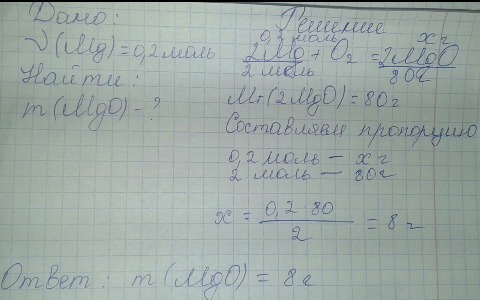 Дано:
ν(Mg) = 0,2 моль
Найти:
m(MgO) - ?
Решение
0,2 моль x г
2Mg + O₂ = 2MgO
2 моль 80г
Mr(2MgO) = 80г
Составляем пропорцию
0,2 моль — x г
2 моль — 80г
x = 0,2·80 / 2 = 8 г
Ответ: m(MgO) = 8г